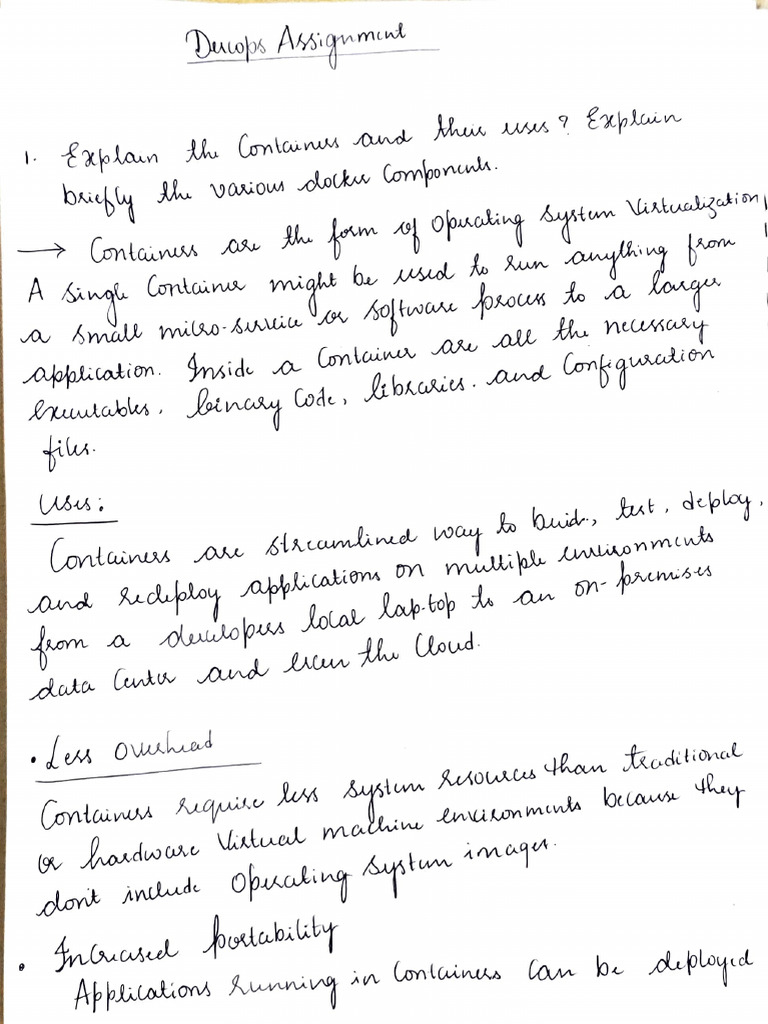 Devops Assignment
1. Explain the Containers and their uses? Explain
briefly the various docker Components.
→ Containers are the form of Operating System Virtualization
A single Container might be used to run anything from
a small micro-service or software process to a larger
application. Inside a Container are all the necessary
executables, binary Code, libraries. and Configuration
files.
Uses:
Containers are streamlined way to build, test, deploy,
and redeploy applications on multiple environments
from a developers local lap-top to an on-premises
data Center and even the Cloud.
• Less Overhead
Containers require less system resources than traditional
or hardware Virtual machine environments because they
don't include Operating System images.
• Increased Portability
Applications running in Containers Can be deployed